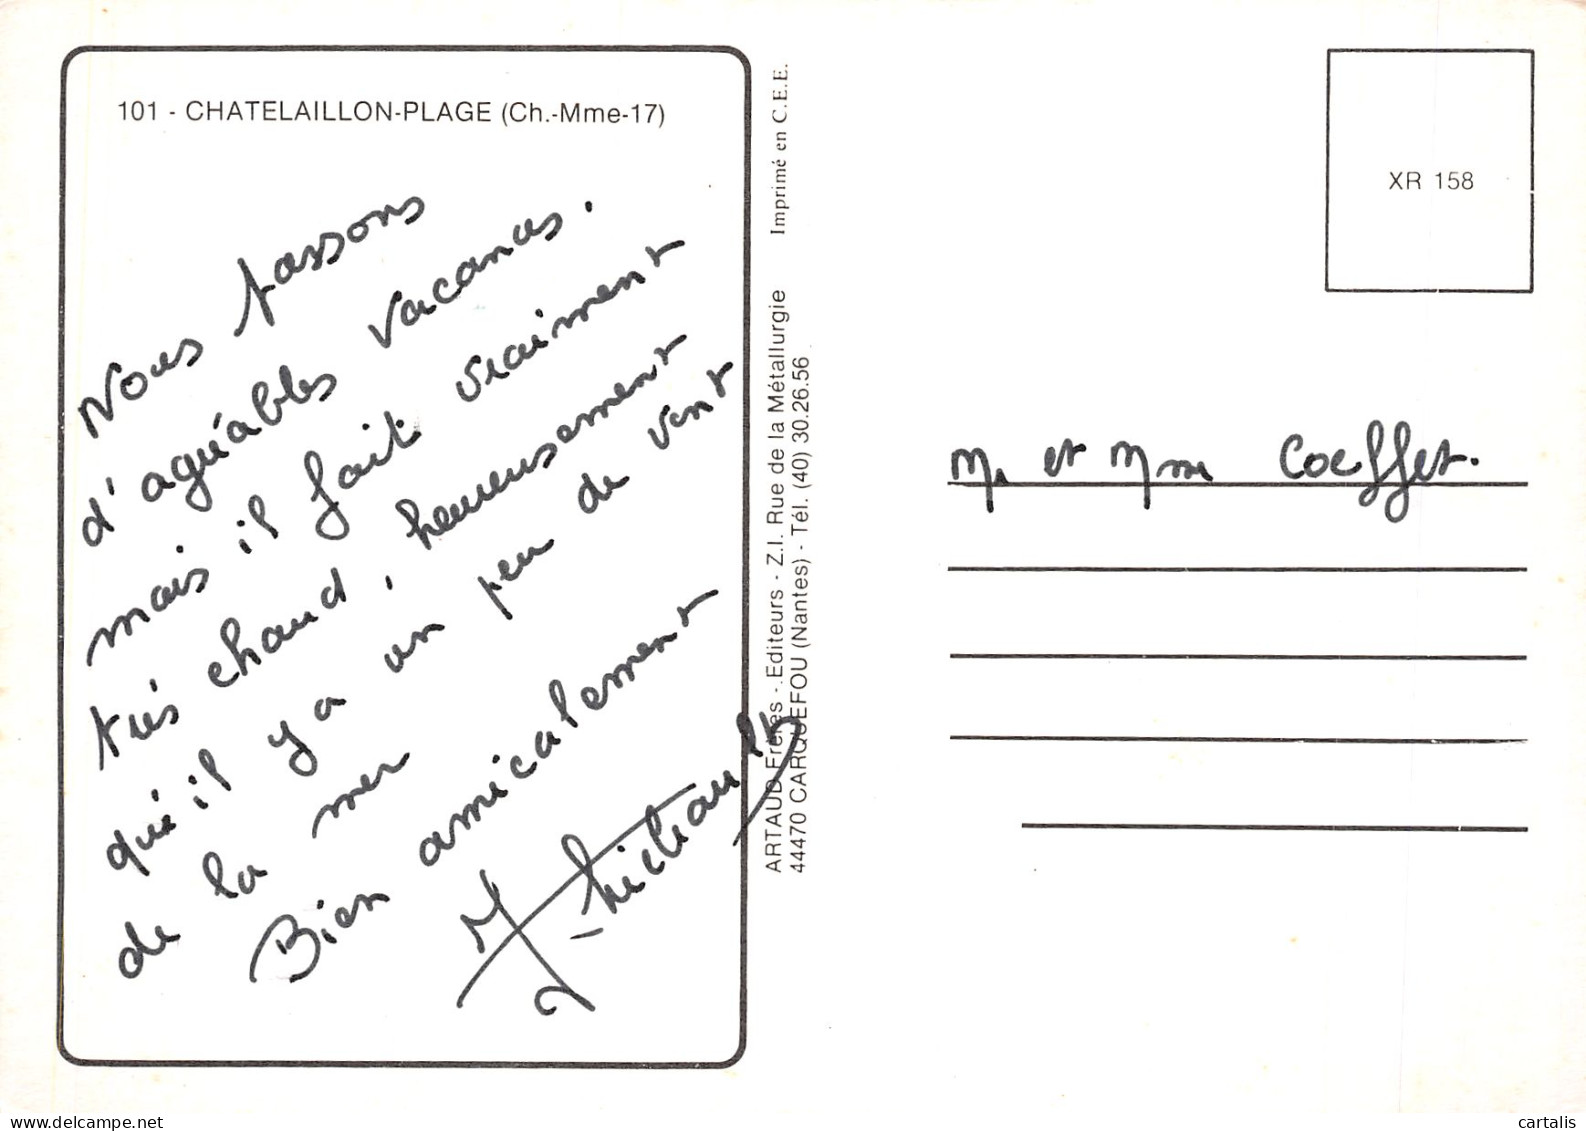 101 - CHATELAILLON-PLAGE (Ch.-Mme-17)
Nous passons
d'agréables vacances.
mais il fait vraiment
très chaud, heureusement
qu'il y a un peu de vent
de la mer
Bien amicalement
Imprimé en C.E.E.
ARTAUD Frères - Editeurs - Z.I. Rue de la Métallurgie
44470 CARQUEFOU (Nantes) - Tél. (40) 30.26.56
XR 158
Mr et Mme Coeffet.
cartalis
delcampe.net